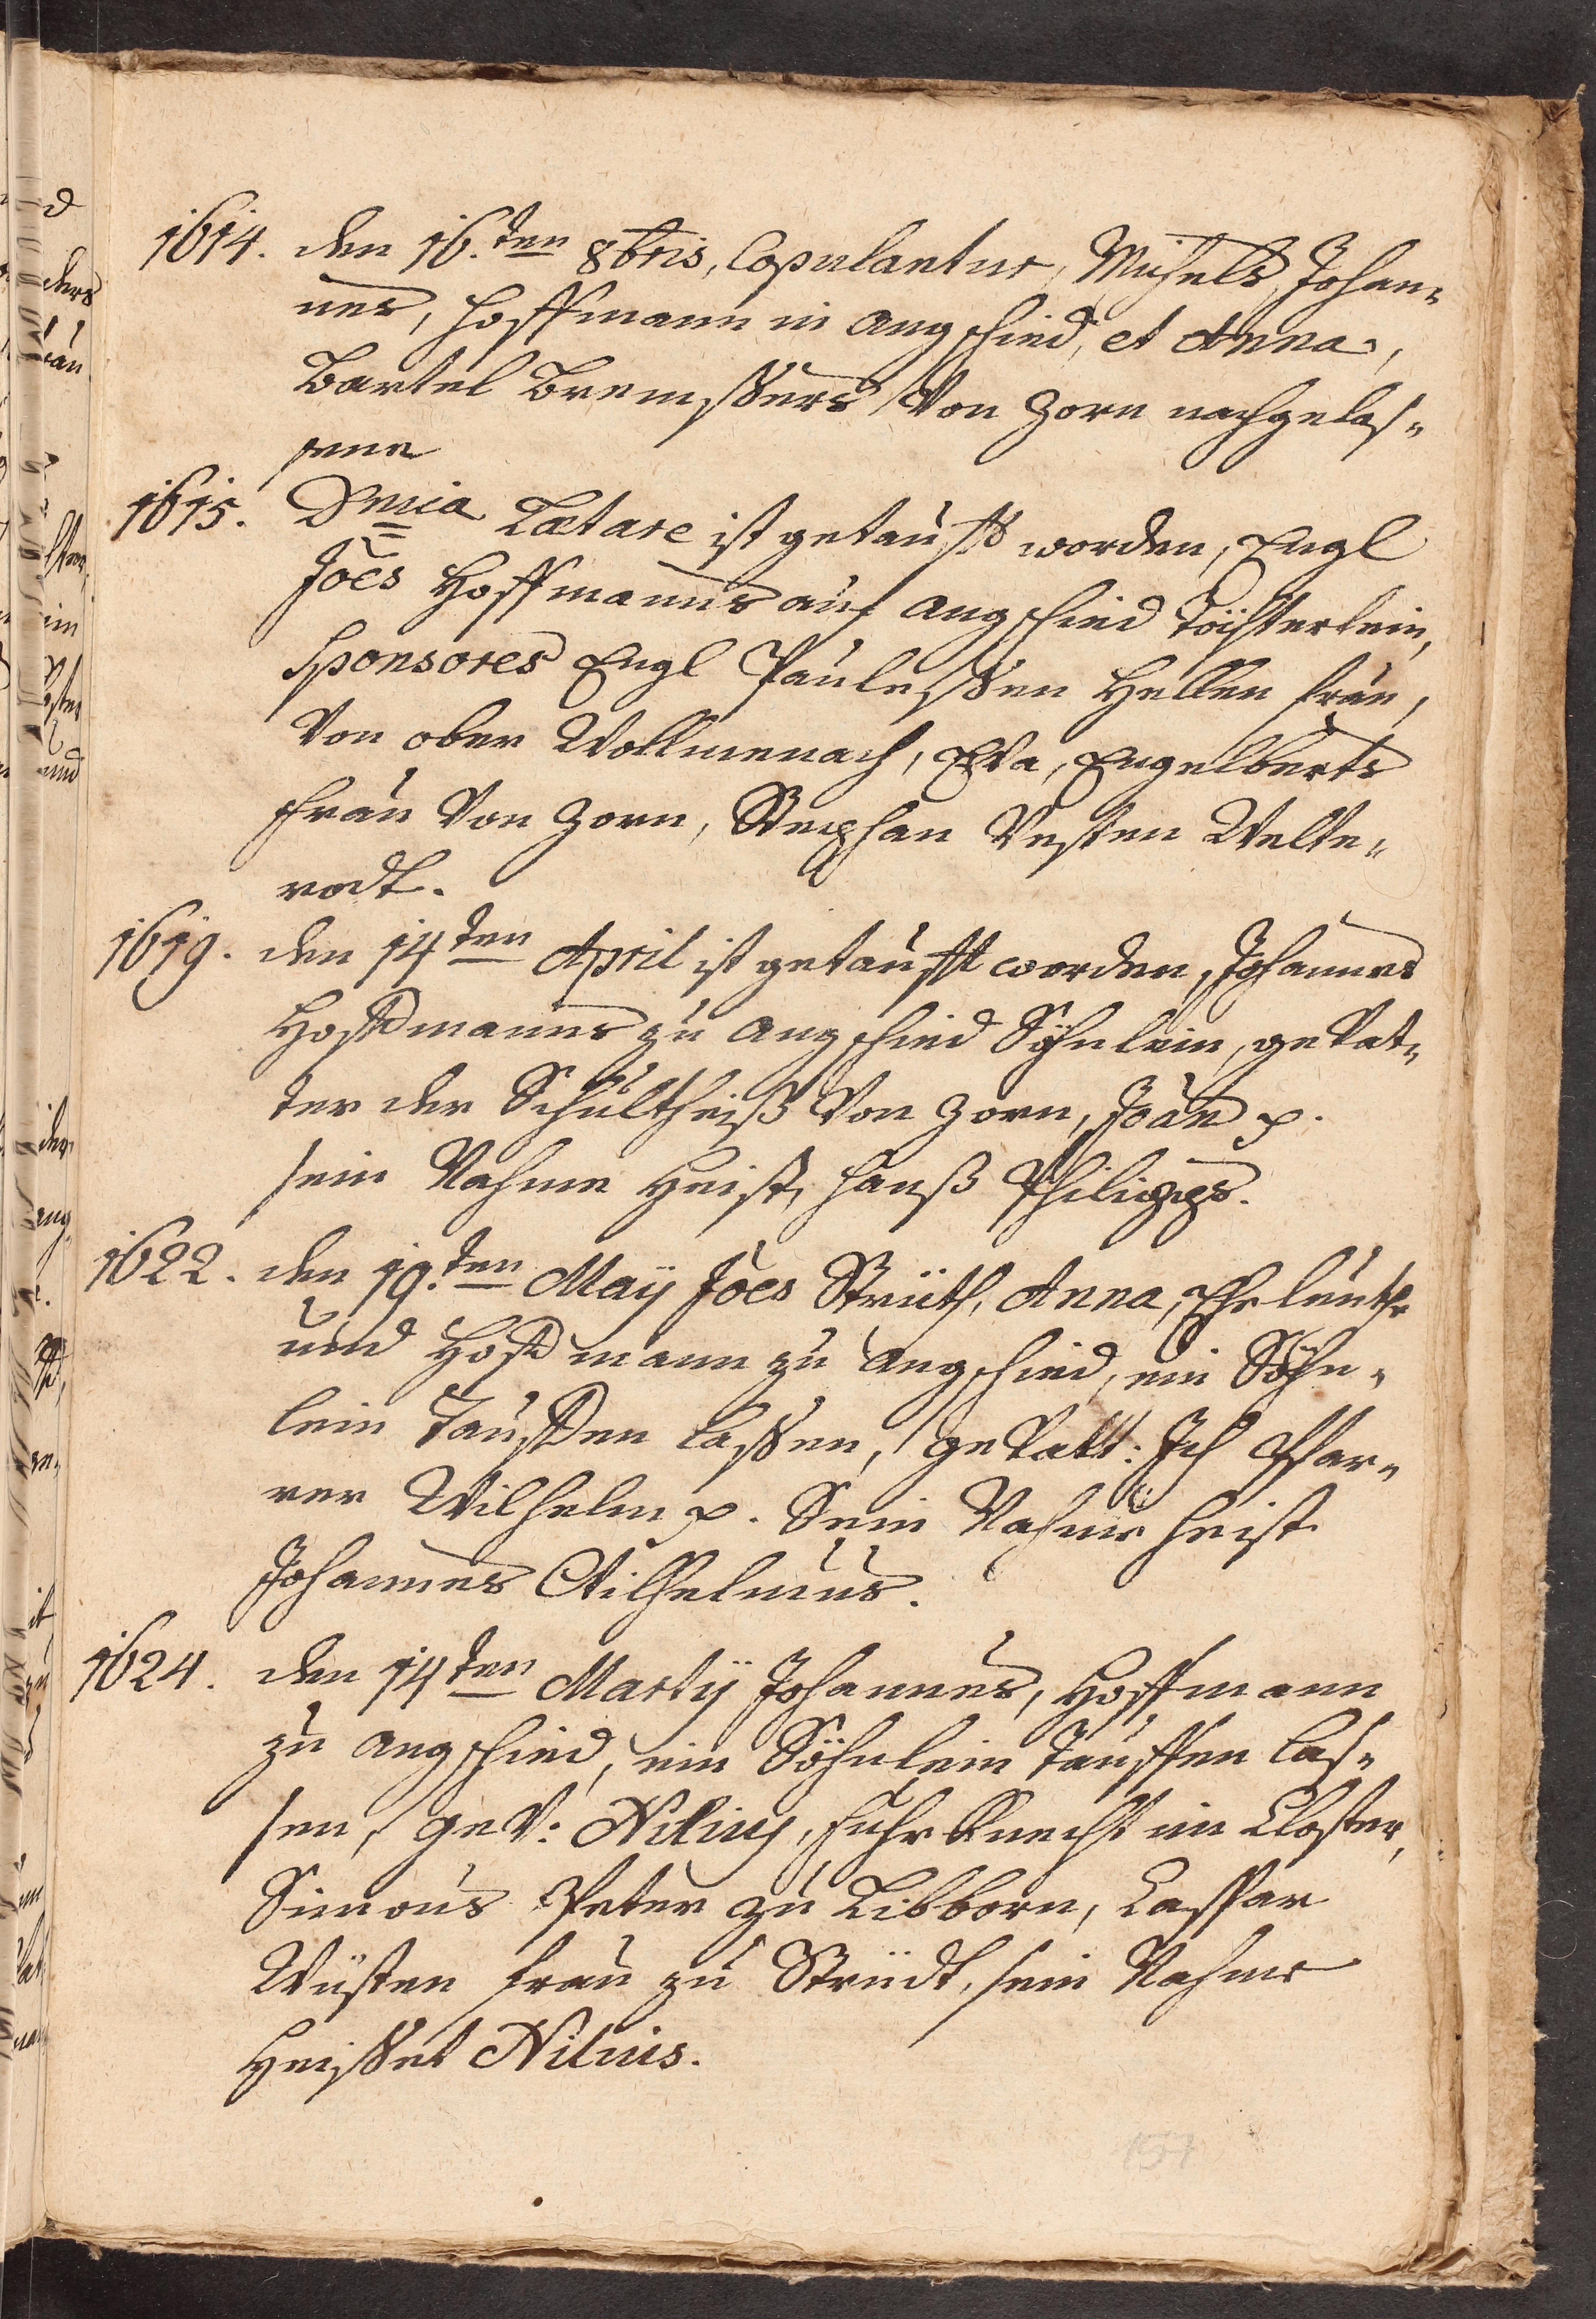 1614. den 16.ten 8bris, Copulantur, Michels, Johan„
nes, Hoffmann in Angschied, et Anna,
Bartel Bremssers Von Zorn nachgelas„
sene
1615. Dmica Lætare ist getaufft worden, Engl
Jōes Hoffmanns auf Angschied Töchterlein,
Sponsores Engl Paulessen Hellen frau,
Von ober Wollmenach, Eva, Engelberts
frau Von Zorn, Stephan Vesten Welte„
rodt.
1619. den 14ten April ist getaufft worden, Johannes
Hoffmanns zu Angschied Söhnlein, gevat„
ter der Schultheiß Von Zorn, Joan p.
sein Nahme heist, Hanß Philipps.
1622. den 19.ten Maÿ Jōes Strüth, Anna, Eheleuthe
und Hoffmann zu Angschied, ein Söhn„
lein Tauffen lassen, gevatt: Ich Pfar„
rer Wilhelm p. Sein Nahme heist
Johannes Wilhelmus.
1624. den 14ten Martÿ Johannes, Hoffmann
zu Angschied, ein Söhnlein Tauffen las„
sen, gev: Nilius, fuhr Knecht im Closter,
Simons Peter zu Libborn, Caspar
Wüsten frau zu Strüdt, sein Nahme
heisset Nilius.
157